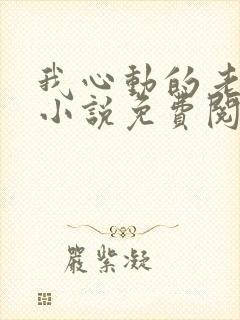 我心動的老
小說免費閱
嚴紫凝